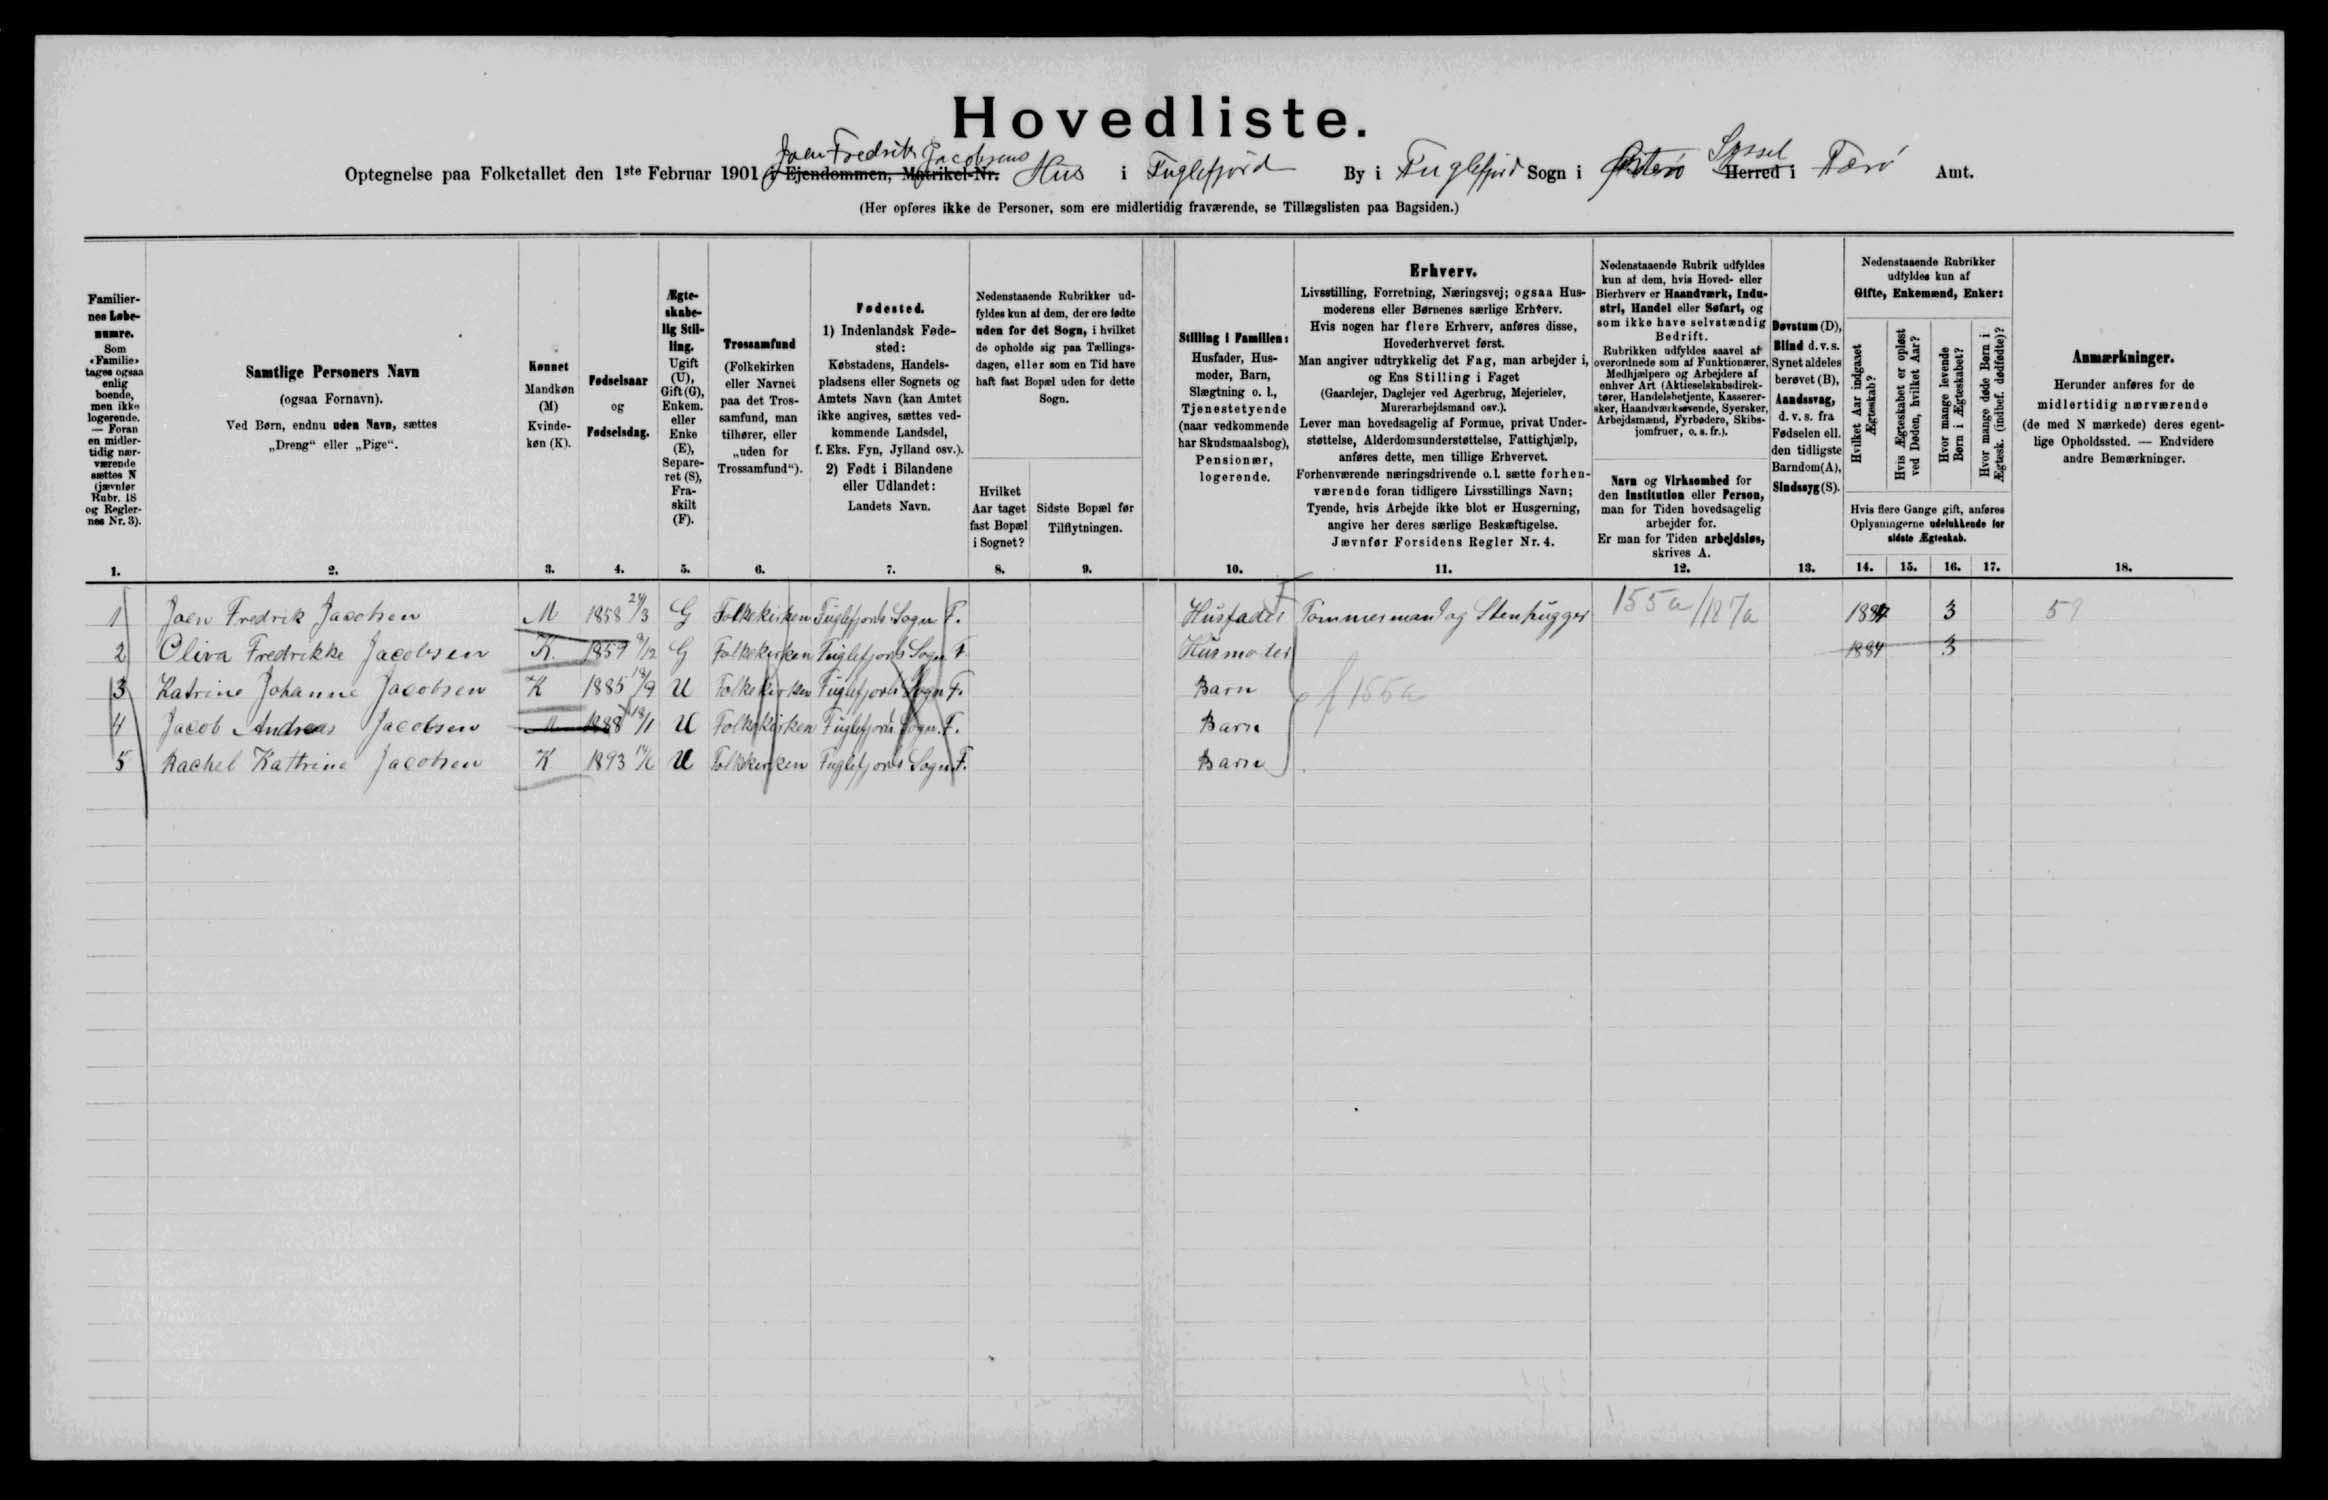 Hovedliste.
Optegnelse paa Folketallet den 1ste Februar 1901 i Ejendommen, Matrikel-Nr. Joen Fredrik Jacobsens Hus i Fuglefjord By i Fuglefjord Sogn i Østerø Herred Syssel i Færø Amt.
(Her opføres ikke de Personer, som ere midlertidig fraværende, se Tillægslisten paa Bagsiden.)
Familiernes Løbenumre.
Som «Familie» tages ogsaa enlig boende, men ikke logerende. — Foran en midlertidig nærværende sættes N (jævnfør Rubr. 18 og Reglernes Nr. 3).
Samtlige Personers Navn
(ogsaa Fornavn).
Ved Børn, endnu uden Navn, sættes
„Dreng“ eller „Pige“.
Kønnet
Mandkøn
(M)
Kvinde-
køn (K).
Fødselsaar
og
Fødselsdag.
Ægte-
skabe-
lig Stil-
ling.
Ugift
(U),
Gift (G),
Enkem.
eller
Enke
(E),
Separe-
ret (S),
Fra-
skilt
(F).
Trossamfund
(Folkekirken
eller Navnet
paa det Tros-
samfund, man
tilhører, eller
„uden for
Trossamfund“).
Fødested.
1) Indenlandsk Føde-
sted:
Købstadens, Handels-
pladsens eller Sognets og
Amtets Navn (kan Amtet
ikke angives, sættes ved-
kommende Landsdel,
f. Eks. Fyn, Jylland osv.).
2) Født i Bilandene
eller Udlandet:
Landets Navn.
Nedenstaaende Rubrikker ud-
fyldes kun af dem, der ere fødte
uden for det Sogn, i hvilket
de opholde sig paa Tællings-
dagen, eller som en Tid have
haft fast Bopæl uden for dette
Sogn.
Hvilket
Aar taget
fast Bopæl
i Sognet?
Sidste Bopæl før
Tilflytningen.
Stilling i Familien:
Husfader, Hus-
moder, Barn,
Slægtning o. l.,
Tjenestetyende
(naar vedkommende
har Skudsmaalsbog),
Pensionær,
logerende.
Erhverv.
Livsstilling, Forretning, Næringsvej; ogsaa Hus-
moderens eller Børnenes særlige Erhverv.
Hvis nogen har flere Erhverv, anføres disse,
Hovederhvervet først.
Man angiver udtrykkelig det Fag, man arbejder i,
og Ens Stilling i Faget
(Gaardejer, Daglejer ved Agerbrug, Mejerielev,
Murerarbejdsmand osv.).
Lever man hovedsagelig af Formue, privat Under-
støttelse, Alderdomsunderstøttelse, Fattighjælp,
anføres dette, men tillige Erhvervet.
Forhenværende næringsdrivende o. l. sætte forhen-
værende foran tidligere Livsstillings Navn;
Tyende, hvis Arbejde ikke blot er Husgerning,
angive her deres særlige Beskæftigelse.
Jævnfør Forsidens Regler Nr. 4.
Nedenstaaende Rubrik udfyldes
kun af dem, hvis Hoved- eller
Bierhverv er Haandværk, Indu-
stri, Handel eller Søfart, og
som ikke have selvstændig
Bedrift.
Rubrikken udfyldes saavel af
overordnede som af Funktionærer,
Medhjælpere og Arbejdere af
enhver Art (Aktieselskabsdirek-
tører, Handelsbetjente, Kasserer-
sker, Haandværkssvende, Syersker,
Arbejdsmænd, Fyrbødere, Skibs-
jomfruer, o. s. fr.).
Navn og Virksomhed for
den Institution eller Person,
man for Tiden hovedsagelig
arbejder for.
Er man for Tiden arbejdsløs,
skrives A.
Døvstum (D),
Blind d. v. s.
Synet aldeles
berøvet (B),
Aandssvag,
d. v. s. fra
Fødselen ell.
den tidligste
Barndom (A),
Sindssyg (S).
Nedenstaaende Rubrikker
udfyldes kun af
Gifte, Enkemænd, Enker:
Hvilket Aar indgaaet Ægteskab?
Hvis Ægteskabet er opløst ved Døden, hvilket Aar?
Hvor mange levende Børn i Ægteskabet?
Hvor mange døde Børn i Ægtesk. (indbef. dødfødte)?
Hvis flere Gange gift, anføres
Oplysningerne udelukkende for
sidste Ægteskab.
Anmærkninger.
Herunder anføres for de
midlertidig nærværende
(de med N mærkede) deres egent-
lige Opholdssted. — Endvidere
andre Bemærkninger.
1. 2. 3. 4. 5. 6. 7. 8. 9. 10. 11. 12. 13. 14. 15. 16. 17. 18.
1 Joen Fredrik Jacobsen M 1858 24/3 G Folkekirken Fuglefjords Sogn F. Husfader Tømmermand og Stenhugger 155a/187a 1884 3
2 Oliva Fredrikke Jacobsen K. 1859 9/12 G Folkekirken Fuglefjords Sogn F. Husmoder 1884 3
3 Katrine Johanne Jacobsen K 1885 18/9 U Folkekirken Fuglefjords Sogn F. Barn f 155a
4 Jacob Andreas Jacobsen M 1888 18/1 U Folkekirken Fuglefjords Sogn. F. Barn
5 Rachel Kattrine Jacobsen K 1893 14/6 U Folkekirken Fuglefjords Sogn F. Barn